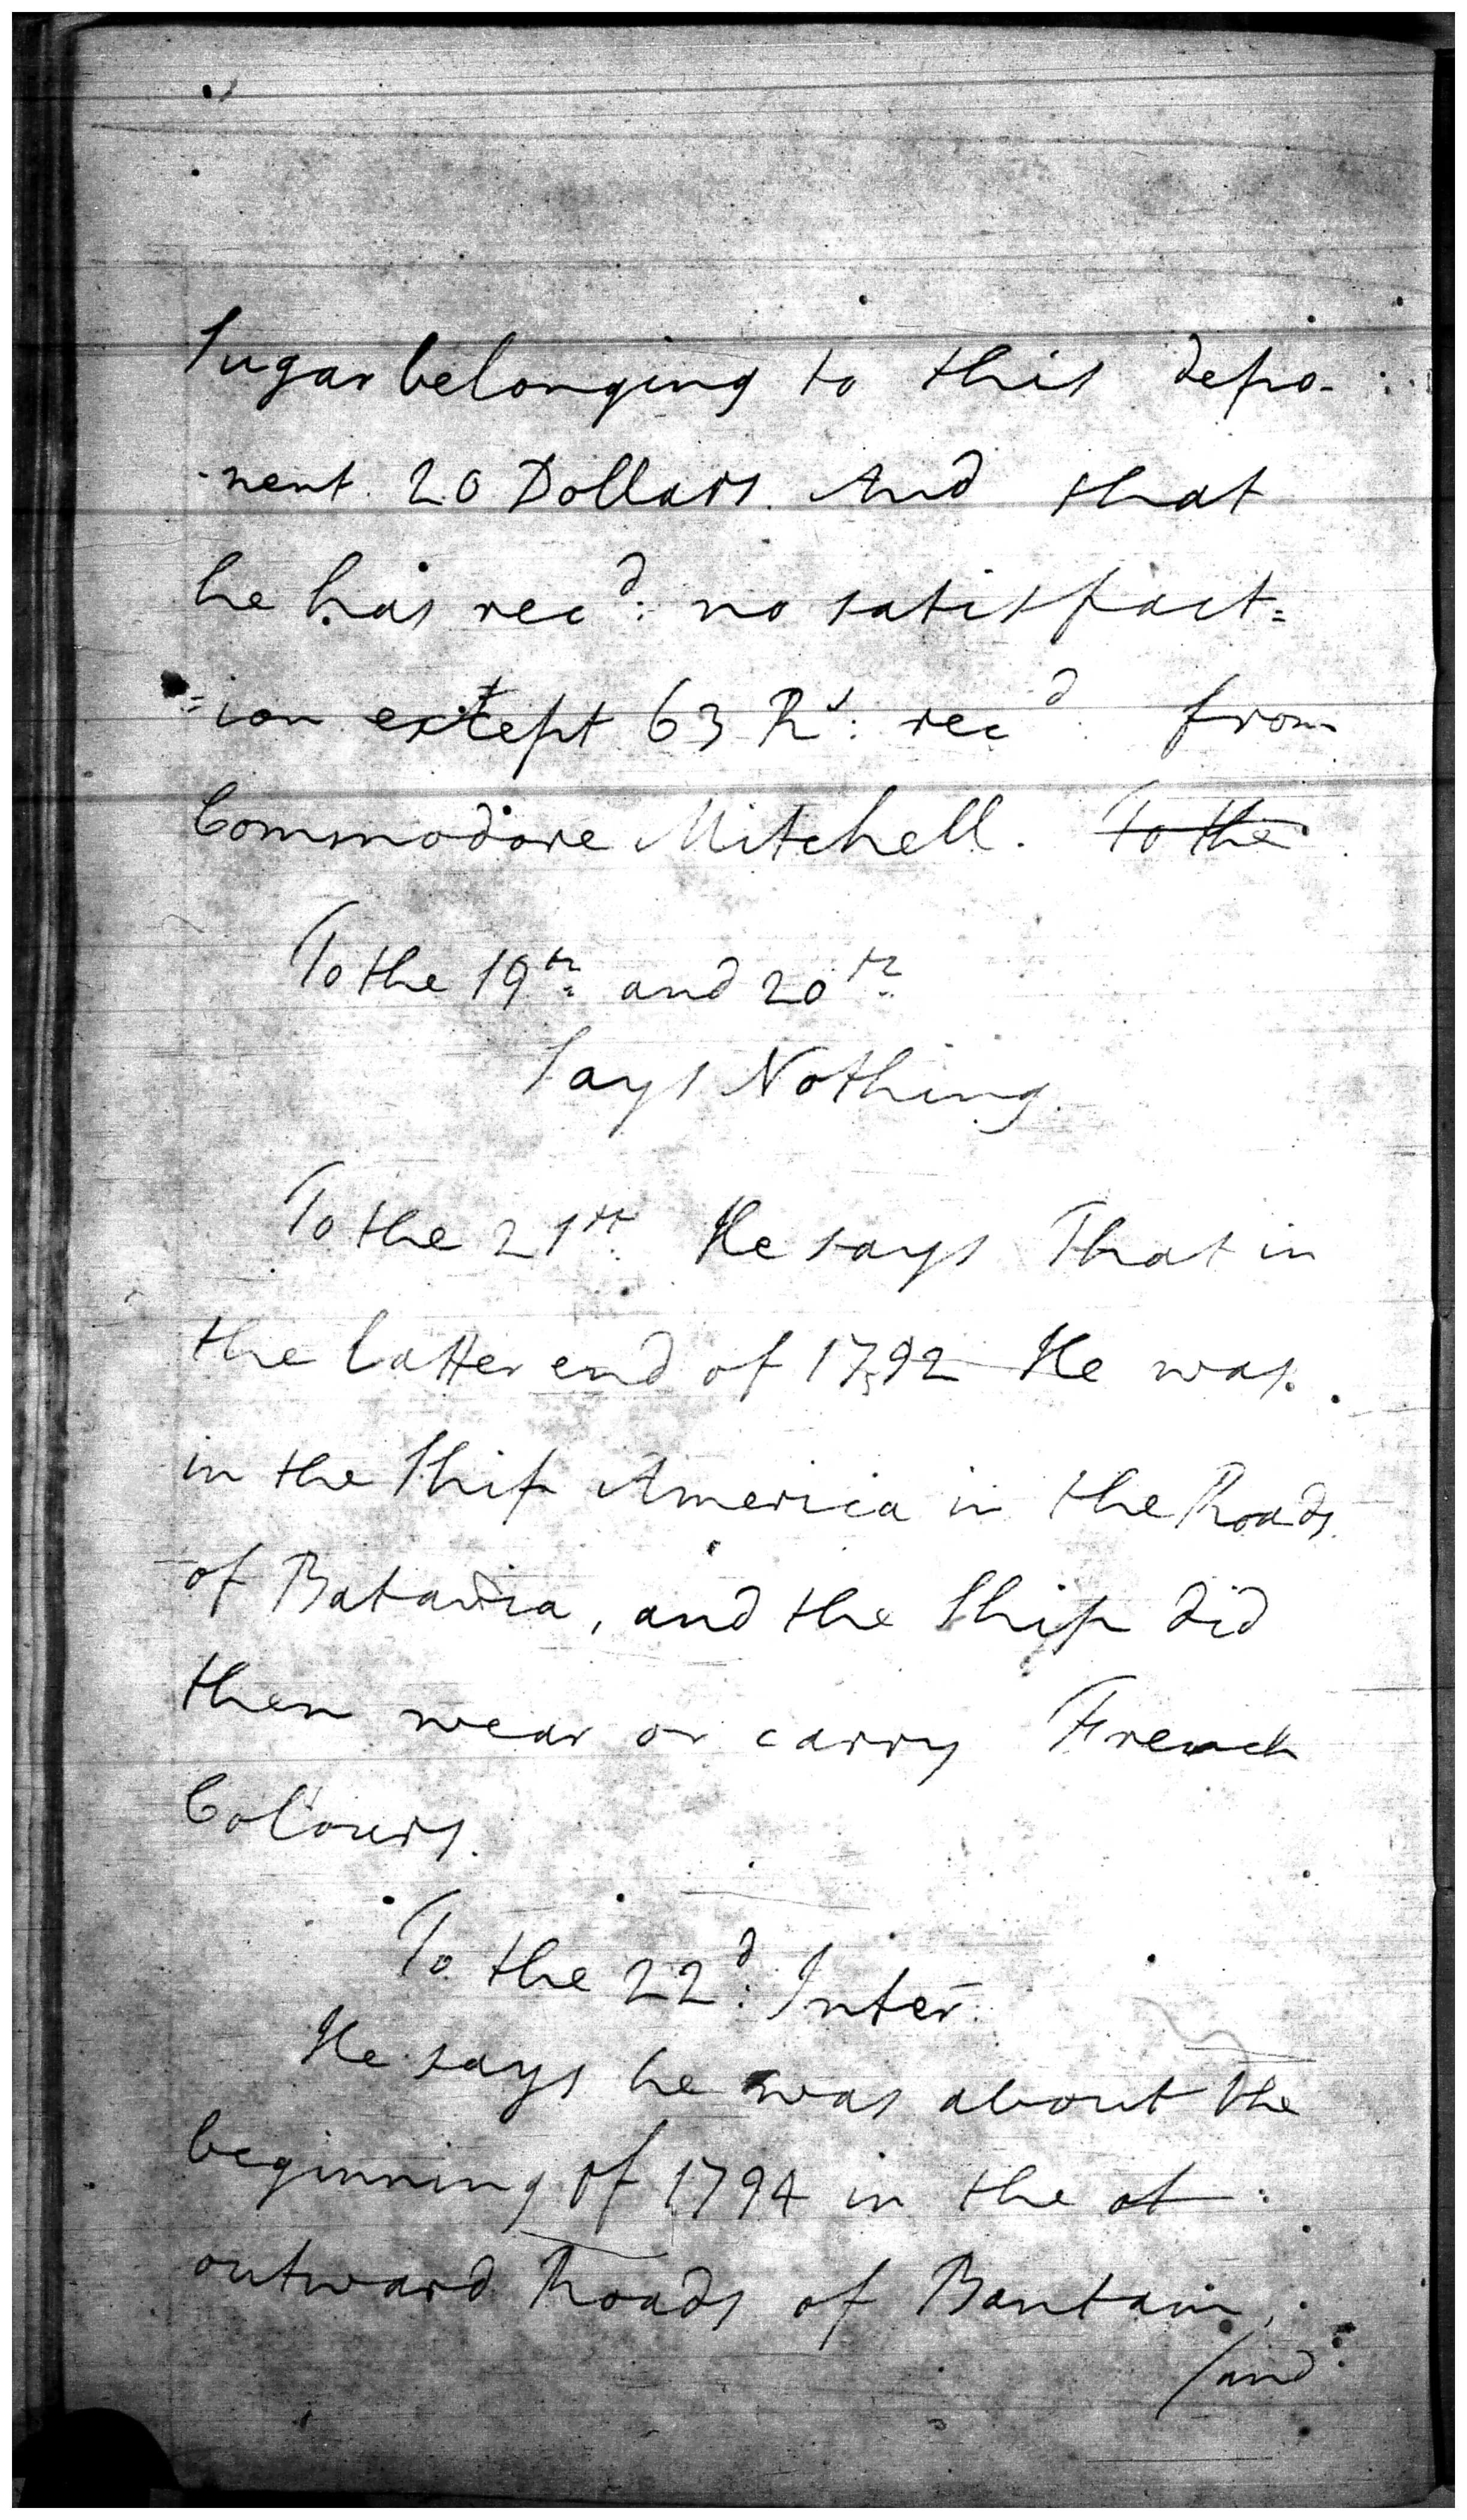 Sugar belonging to this depo-
-nent 20 Dollars. And that
he has recd: no satisfact=
=ion extept 63 Rs: recd: from
Commodore Mitchell. To the
To the 19th and 20th
Says Nothing.
To the 21st He says That in
the latter end of 1792 He was
in the Ship America in the Roads
of Batavia, and the Ship did
then wear or carry French
Colours.
To the 22d: Inter.
He says he was about the
beginning of 1794 in the ot
outward Roads of Bantam,
/and